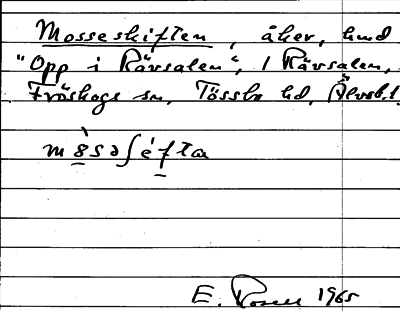 Mosseskiften, åker, hmd
"Opp i Rävsalen", / Rävsalen,
Fröskogs sn, Tössbo hd, Älvsb. l.
m8̀sə∫éfta
E. Rosell 1965